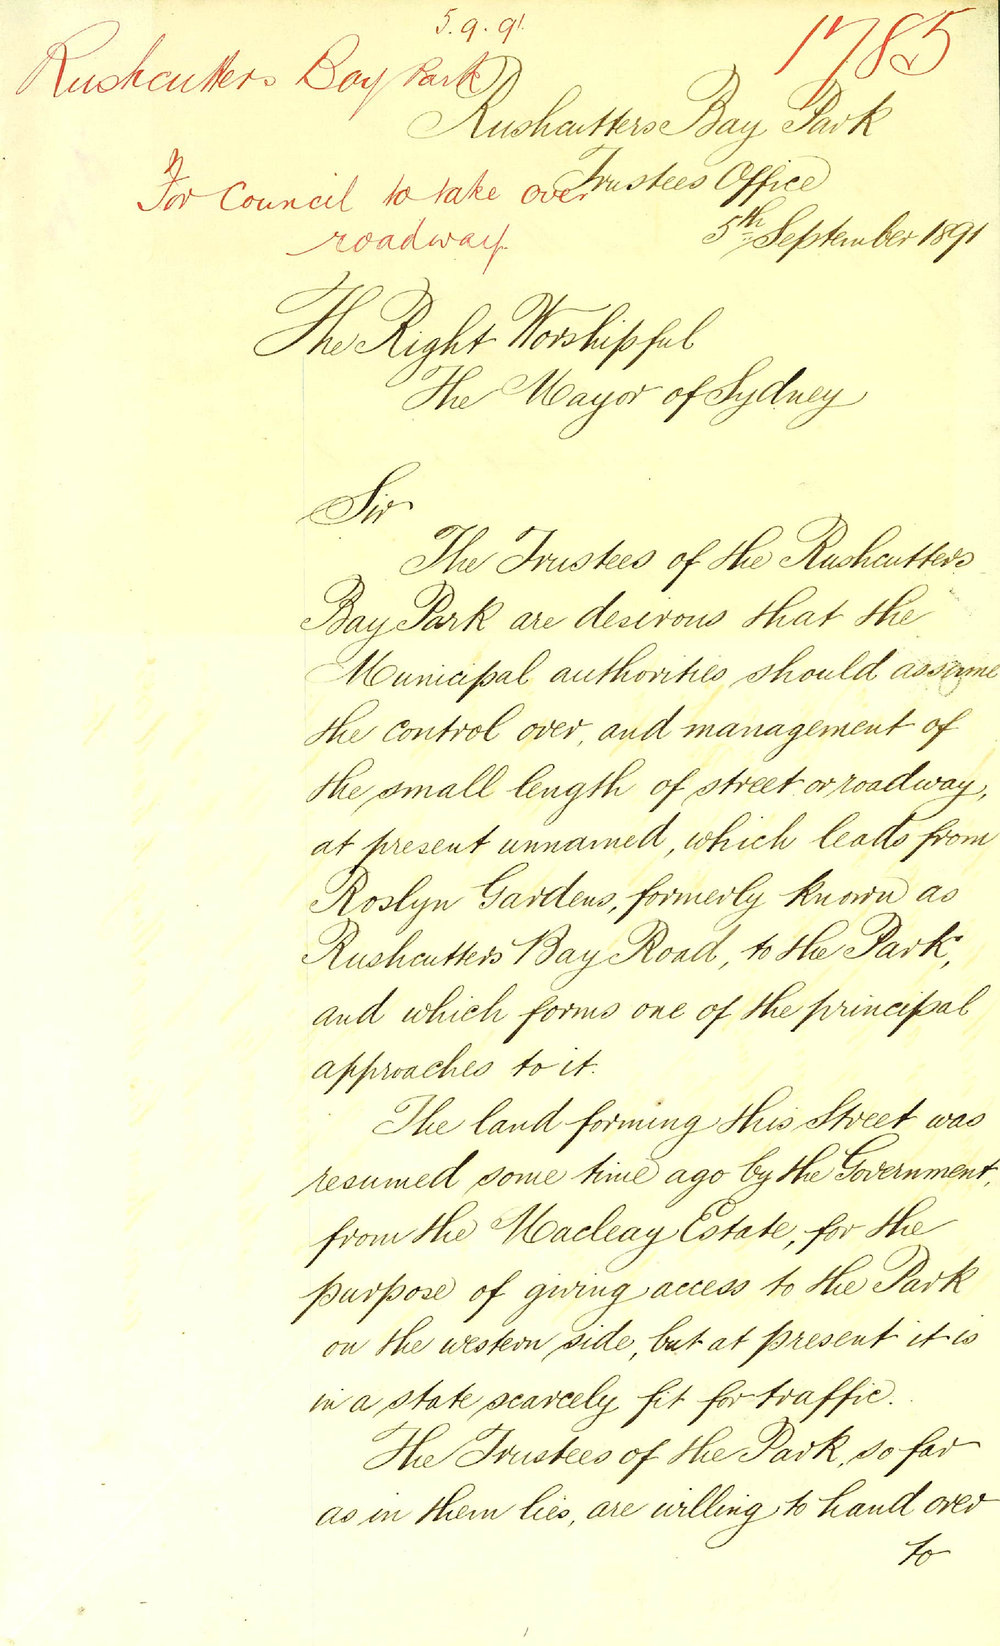 5.9.91.
1785
Rushcutters Bay Park
Rushcutters Bay Park
For Council to take over
roadway.
Trustees Office
5th September 1891
The Right Worshipful
The Mayor of Sydney
Sir
The Trustees of the Rushcutters
Bay Park are desirous that the
Municipal authorities should assume
the control over, and management of
the small length of street or roadway,
at present unnamed, which leads from
Roslyn Gardens, formerly known as
Rushcutters Bay Road, to the Park,
and which forms one of the principal
approaches to it.
The land forming this Street was
resumed some time ago by the Government,
from the Macleay Estate, for the
purpose of giving access to the Park
on the western side, but at present it is
in a state scarcely fit for traffic.
The Trustees of the Park, so far
as in them lies, are willing to hand over
to